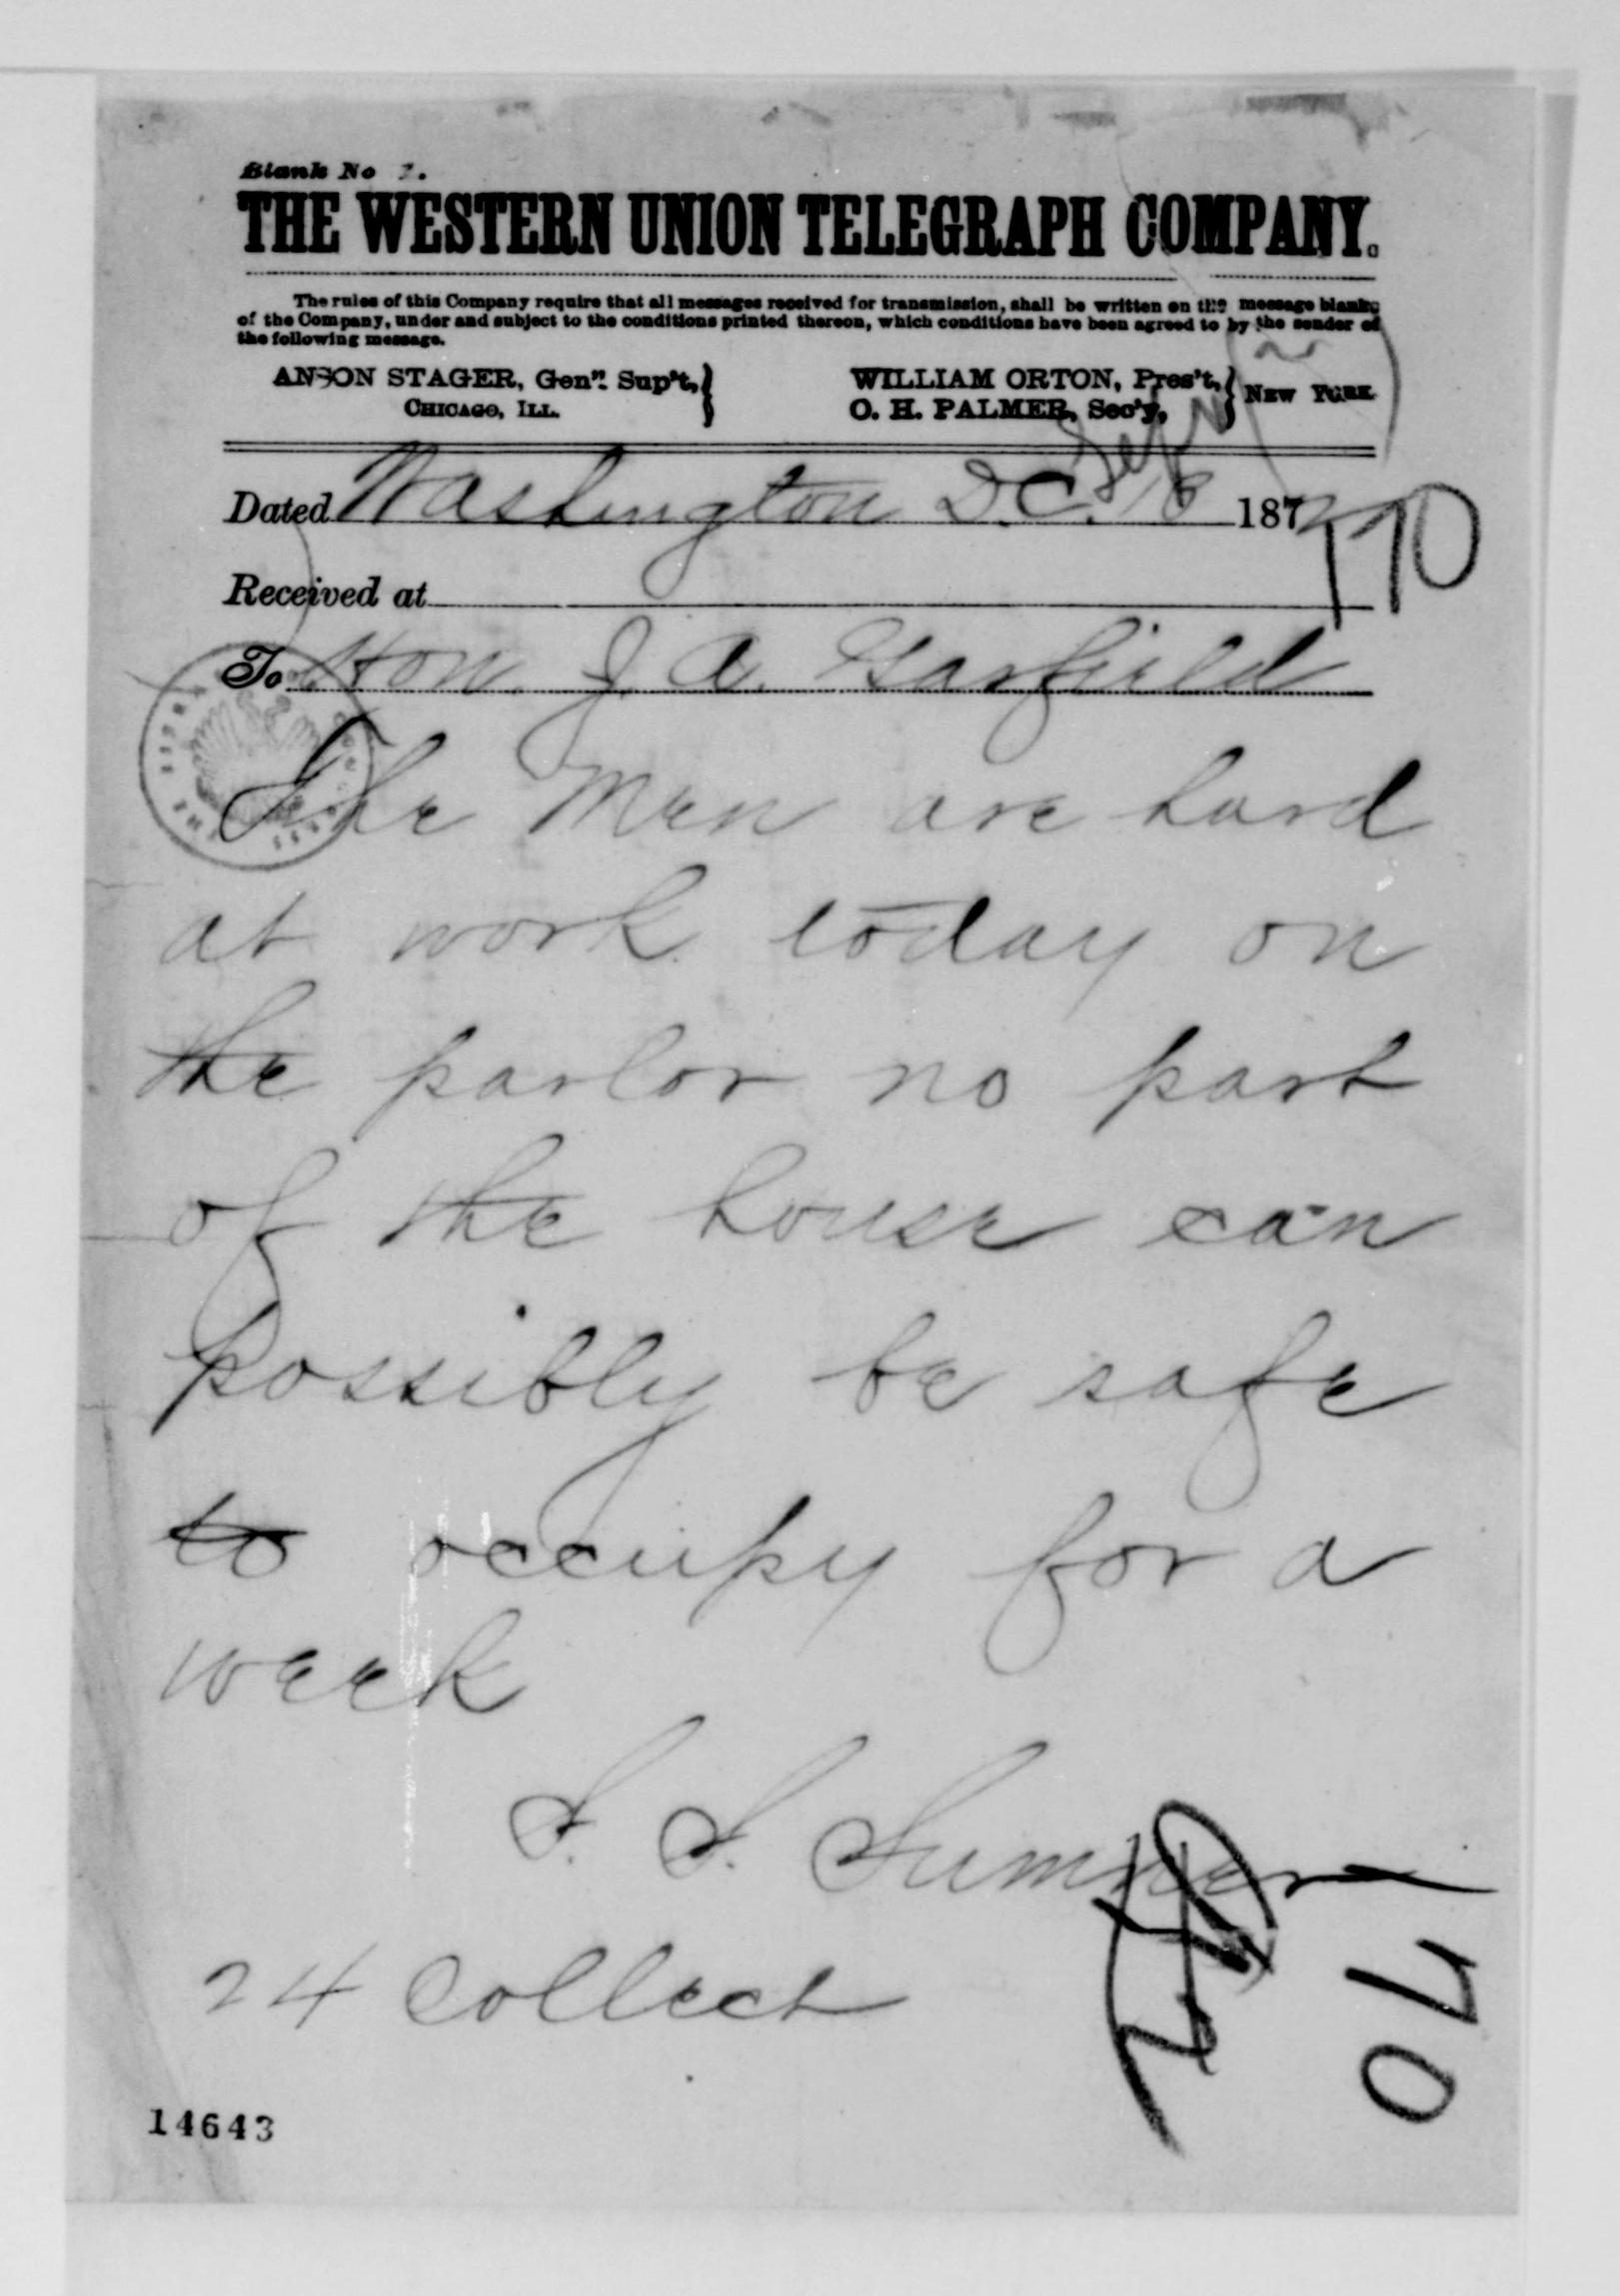 Blank No 2.
THE WESTERN UNION TELEGRAPH COMPANY.
The rules of this Company require that all messages received for transmission, shall be written on the message blanks
of the Company, under and subject to the conditions printed thereon, which conditions have been agreed to by the sender of
the following message.
ANSON STAGER, Gen'l Sup't,
CHICAGO, ILL.
WILLIAM ORTON, Pres't,
O. H. PALMER, Sec'y,
NEW YORK
Dated Washington D.C. Sept 18 187
170
Received at
To Hon J. A. Garfield
The Men are hard
at work today on
the parlor no part
of the house can
possibly be safe
to occupy for a
week
S. S. Sumner
24 Collect
170
14643